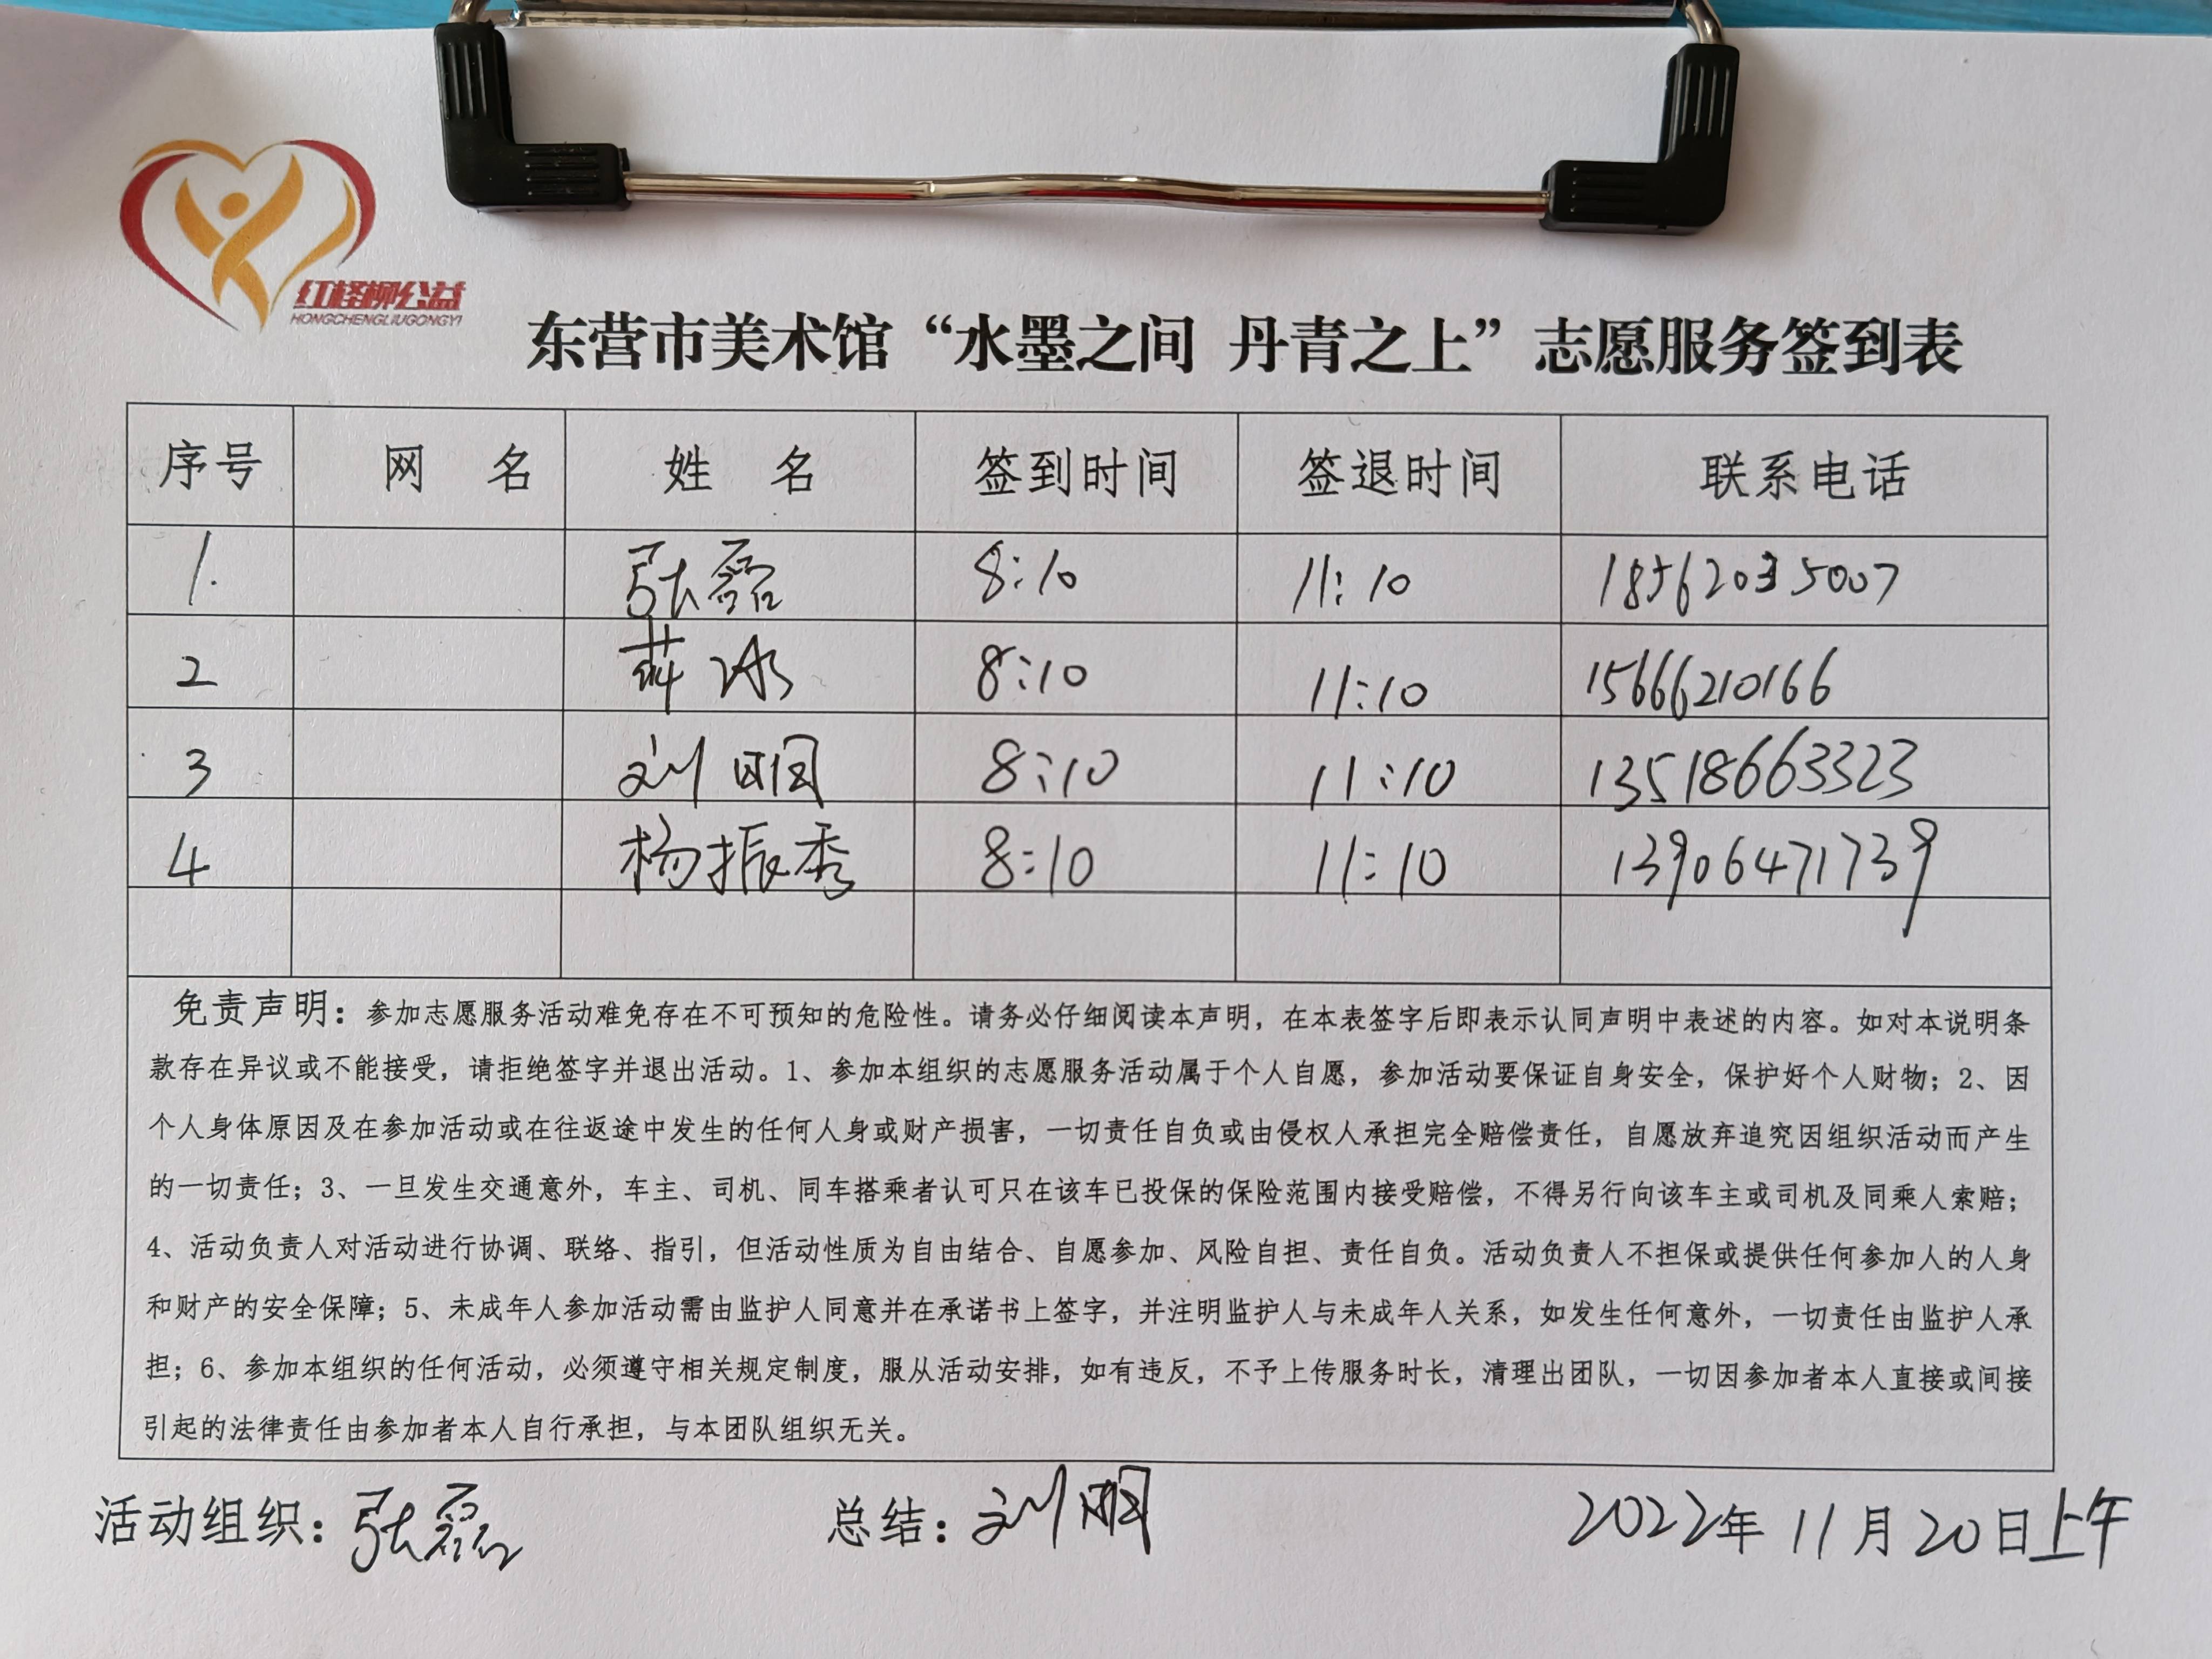 红柽柳公益
HONGCHENGLIUGONGYI
东营市美术馆“水墨之间 丹青之上”志愿服务签到表
序号 网 名 姓 名 签到时间 签退时间 联系电话
1. 张磊 8:10 11:10 18562035007
2 冰 8:10 11:10 15666210166
3 刘明 8:10 11:10 13518663323
4 杨振秀 8:10 11:10 13906471739
免责声明：参加志愿服务活动难免存在不可预知的危险性。请务必仔细阅读本声明，在本表签字后即表示认同声明中表述的内容。如对本说明条
款存在异议或不能接受，请拒绝签字并退出活动。1、参加本组织的志愿服务活动属于个人自愿，参加活动要保证自身安全，保护好个人财物；2、因
个人身体原因及在参加活动或在往返途中发生的任何人身或财产损害，一切责任自负或由侵权人承担完全赔偿责任，自愿放弃追究因组织活动而产生
的一切责任；3、一旦发生交通意外，车主、司机、同车搭乘者认可只在该车已投保的保险范围内接受赔偿，不得另行向该车主或司机及同乘人索赔；
4、活动负责人对活动进行协调、联络、指引，但活动性质为自由结合、自愿参加、风险自担、责任自负。活动负责人不担保或提供任何参加人的人身
和财产的安全保障；5、未成年人参加活动需由监护人同意并在承诺书上签字，并注明监护人与未成年人关系，如发生任何意外，一切责任由监护人承
担；6、参加本组织的任何活动，必须遵守相关规定制度，服从活动安排，如有违反，不予上传服务时长，清理出团队，一切因参加者本人直接或间接
引起的法律责任由参加者本人自行承担，与本团队组织无关。
活动组织：张磊 总结：刘明 2022年 11月 20日上午